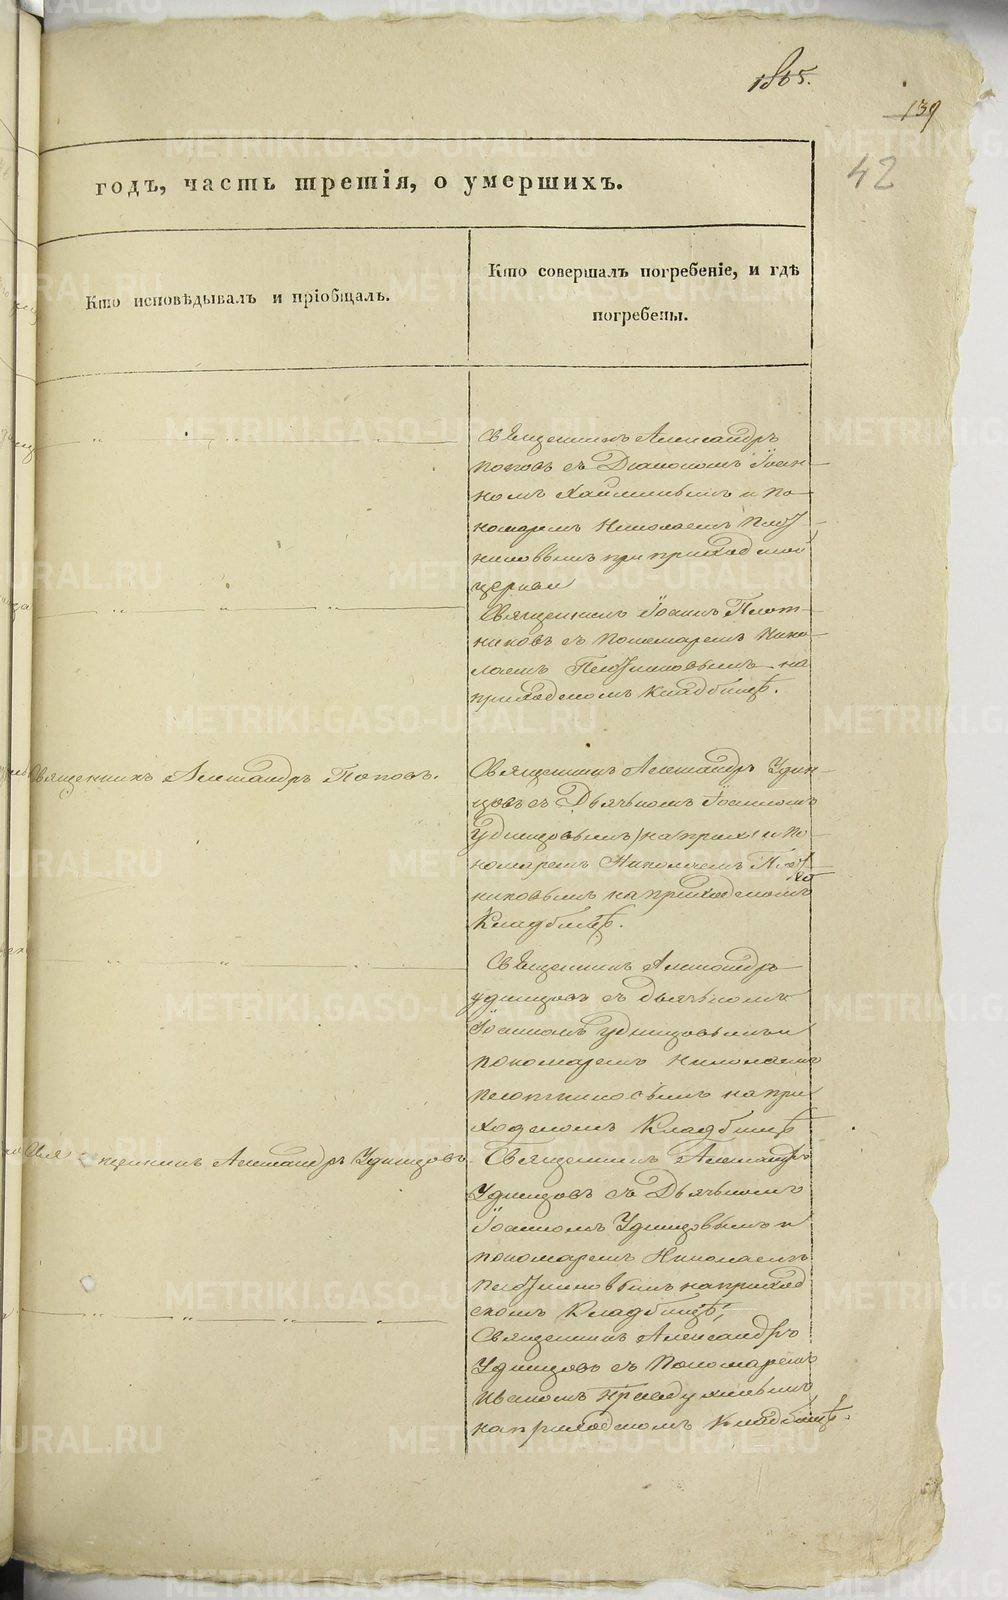 1865.
139
42
годъ, часть третія, о умершихъ.
Кто исповѣдывалъ и пріобщалъ.
Кто совершалъ погребеніе, и гдѣ
погребены.
Священникъ Александръ
Поповъ съ Діакономъ Іоан-
номъ и по-
номаремъ Николаемъ Плот-
никовымъ при приходской
церкви
Священникъ Іоаннъ Плот-
никовъ съ Пономаремъ Нико-
лаемъ Плотниковымъ на
приходскомъ кладбищѣ.
Священникъ Александръ Поповъ.
Священникъ Александръ Удин-
цовъ съ Дьячкомъ Іоанномъ
Удинцовымъ (на прих) и По-
номаремъ Николаемъ Плот-
никовымъ на приходскомъ
Кладбищѣ.
Священникъ Александръ
Удинцовъ съ дьячкомъ
Іоанномъ Удинцовымъ и
пономаремъ Николаемъ
Плотниковымъ на при
ходскомъ Кладбищѣ
Священникъ Александръ Удинцовъ
Священникъ Александръ
Удинцовъ съ Дьячкомъ
Іоанномъ Удинцовымъ и
пономаремъ Николаемъ
Плотниковымъ на приход
скомъ Кладбищѣ;
Священникъ Александръ
Удинцовъ съ Пономаремъ
Иваномъ
на приходскомъ Кладбищѣ.
METRIKI.GASO-URAL.RU